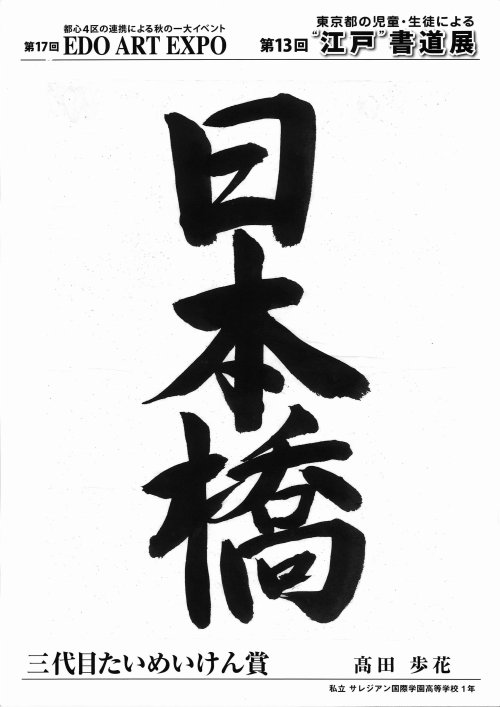 都心4区の連携による秋の一大イベント
第17回 EDO ART EXPO
東京都の児童・生徒による
第13回 “江戸”書道展
日本橋
三代目たいめいけん賞
髙田 歩花
私立 サレジアン国際学園高等学校 1年